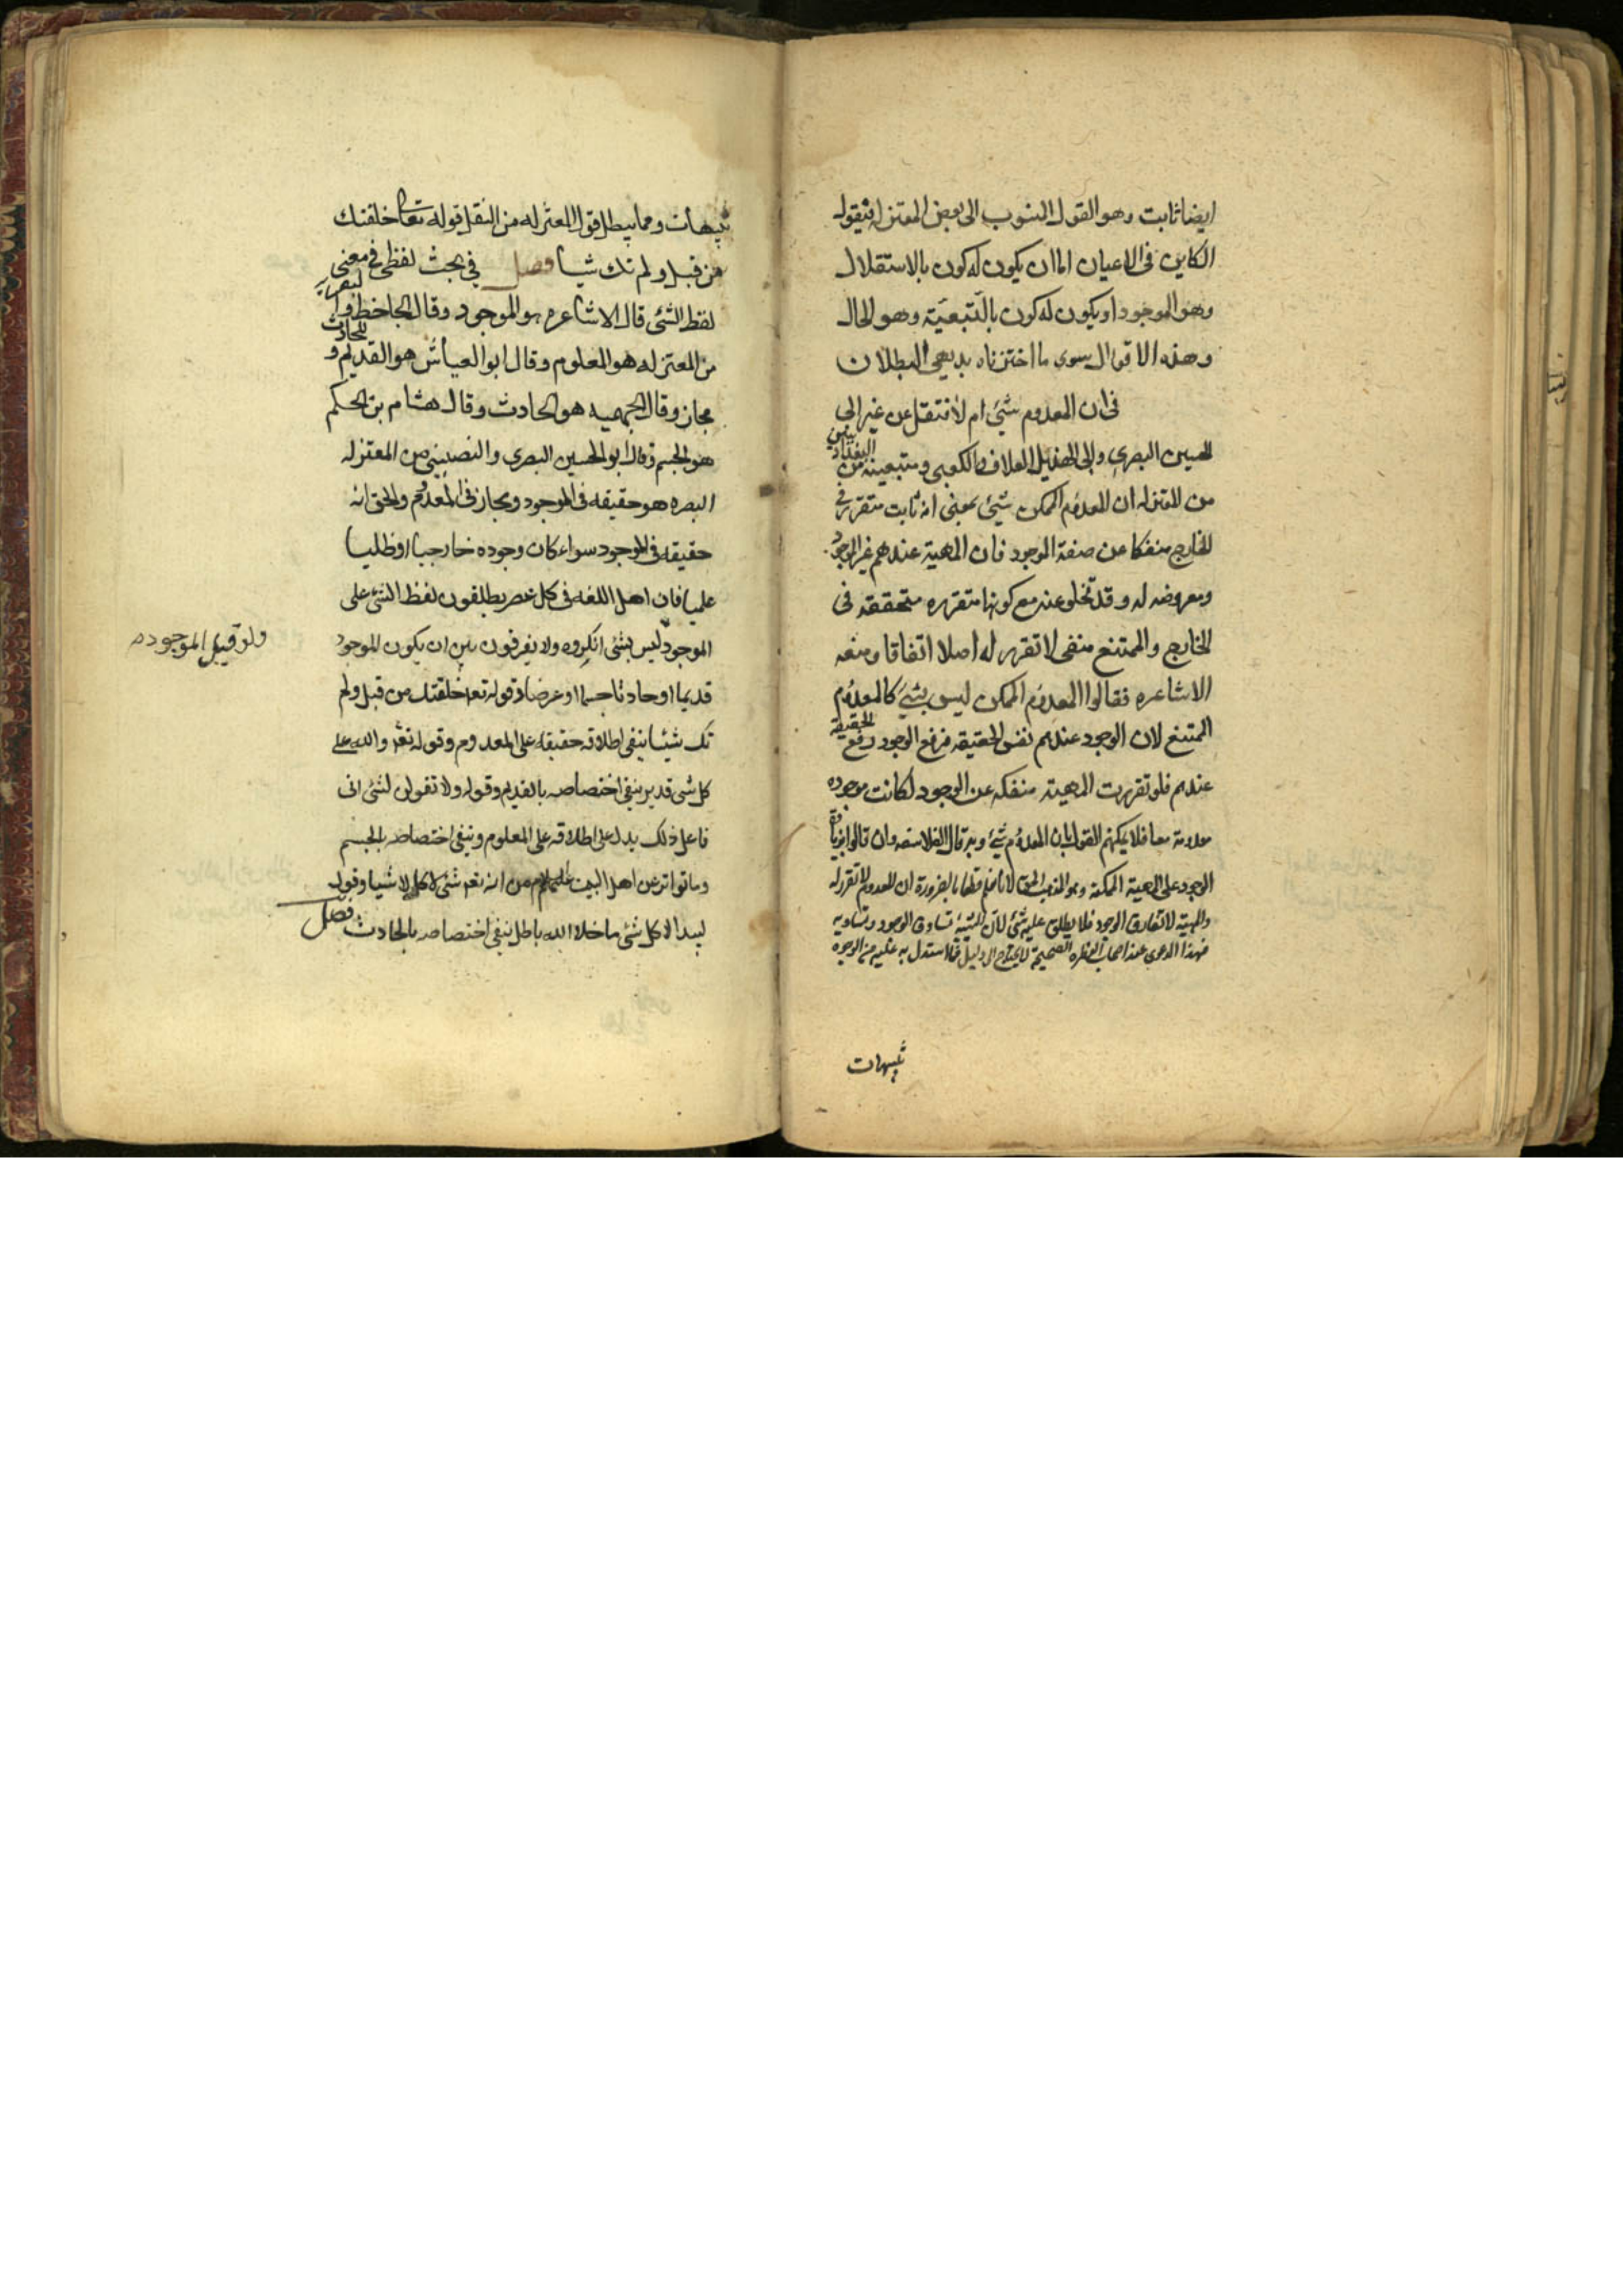 ايضا ثابت وهو القول المنسوب الى بعض المعتزله فيقول
الكاين فى الاعيان اما ان يكون له كون بالاستقلال
وهو الموجود او يكون له كون بالتبعية وهو الحال
وهذه الاقوال سوى ما اخترناه بديهى البطلان
فى ان المعدوم شئ ام لا فنتقل عن غير ابى
الحسين البصرى وابى الهذيل العلاف والكعبى ومتبعيه من
البغداديين
من المعتزله ان المعدوم الممكن شئ بمعنى انه ثابت متقرر فى
الخارج منفكا عن صفة الوجود فان المهية عندهم غير الوجود
ومعروضه له وقد تخلو عنه مع كونها متقرره متحققه فى
الخارج والممتنع منفى لا تقرر له اصلا اتفاقا ومنعه
الاشاعره فقالوا المعدوم الممكن ليس بشئ كالمعدوم
الممتنع لان الوجود عندهم نفس الحقيقه فرفع الوجود رفع الحقيقة
عندهم فلو تقررت المهية منفكه عن الوجود لكانت موجوده
معدومة معا فلا يمكنهم القول بان المعدوم شئ وبه قال الفلاسفه وان قالوا بزيادة
الوجود على المهية الممكنة وهو المذهب الحق لانا نعلم قطعا بالضرورة ان المعدوم لا تقرر له
والمهية لا تفارق الوجود فلا يطلق عليه شئ لان الشيئة تساوق الوجود وتساويه
فهذا الدعوى عند اصحاب الفطره الصحيحة لا يحتاج الى دليل فما استدل به عليه من الوجوه
تنبيهات
تنبيهات ومما يبطل قول المعتزله من النقل قوله تعالى خلقتك
من قبل ولم تك شيا فصل فى بحث لفظى فى معنى
لفظ الشئ قال الاشاعره هو الموجود وقال الجاحظ و
من المعتزله هو المعلوم وقال ابو العباس هو القديم و
للحادث
مجاز وقال الجهميه هو الحادث وقال هشام بن الحكم
هو الجسم وقال ابو الحسين البصرى والنصيبينى من المعتزله
البصره هو حقيقه فى الموجود ومجاز فى المعدوم والحق انه
حقيقه فى الموجود سواء كان وجوده خارجيا او ظليا
علميا فان اهل اللغه فى كل عصر يطلقون لفظ الشئ على
الموجود ليس بشئ انكروه ولا يفرقون بين ان يكون الموجود
ولو قيل الموجوده
قديما او حادثا جسما او عرضا وقوله تعه خلقتك من قبل ولم
تك شيئا ينفى اطلاقه حقيقه على المعدوم وقوله تعه والله على
كل شى قدير ينفى اختصاصه بالقديم وقوله ولا تقولن لشئ انى
فاعل ذلك يدل على اطلاقه على المعلوم وينفى اختصاصه بالجسم
وما تواتر عن اهل البيت عليهم السلام من انه تعه شئ لا كالاشيا وقول
لبيد الا كل شئ ما خلا الله باطل ينفى اختصاصه بالحادث فصل